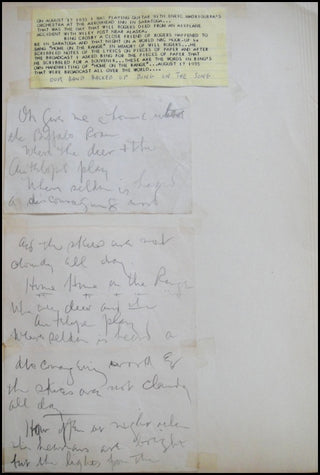 ON AUGUST 17 1935 I WAS PLAYING GUITAR WITH ENRIC MADRIGUERA'S
ORCHESTRA AT THE ARROWHEAD INN IN SARATOGA...
THAT WAS THE DAY THAT WILL ROGERS DIED FROM AN AIRPLANE
ACCIDENT WITH WILEY POST NEAR ALASKA.
BING CROSBY A CLOSE FRIEND OF ROGERS HAPPENED TO
BE IN SARATOGA AND THAT NIGHT ON A WORLD WAS HOOK-UP HE
SANG "HOME ON THE RANGE" IN MEMORY OF WILL ROGERS...HE
SCRIBBLED NOTES OF THE LYRICS ON PIECES OF PAPER AND AFTER
THE BROADCAST I ASKED BING FOR THE PIECES OF PAPER THAT
HE SCRIBBLED FOR A SOUVENIR...THESE ARE THE WORDS IN BING'S
OWN HANDWRITING OF "HOME ON THE RANGE"...AUGUST 17 1935
THAT WERE BROADCAST ALL OVER THE WORLD....
OUR BAND BACKED UP BING ON THE SONG
Oh give me a home
the Buffalo Roam
Where the deer & the
Antelope play
Where seldom is heard
a discouraging word
And the skies are not
cloudy all day.
Home Home on the Range
Where deer and the
Antelope play
Where seldom is heard a
discouraging word &
the skies are not cloudy
all day
How often at night when
the heavens are bright
but the lights from the